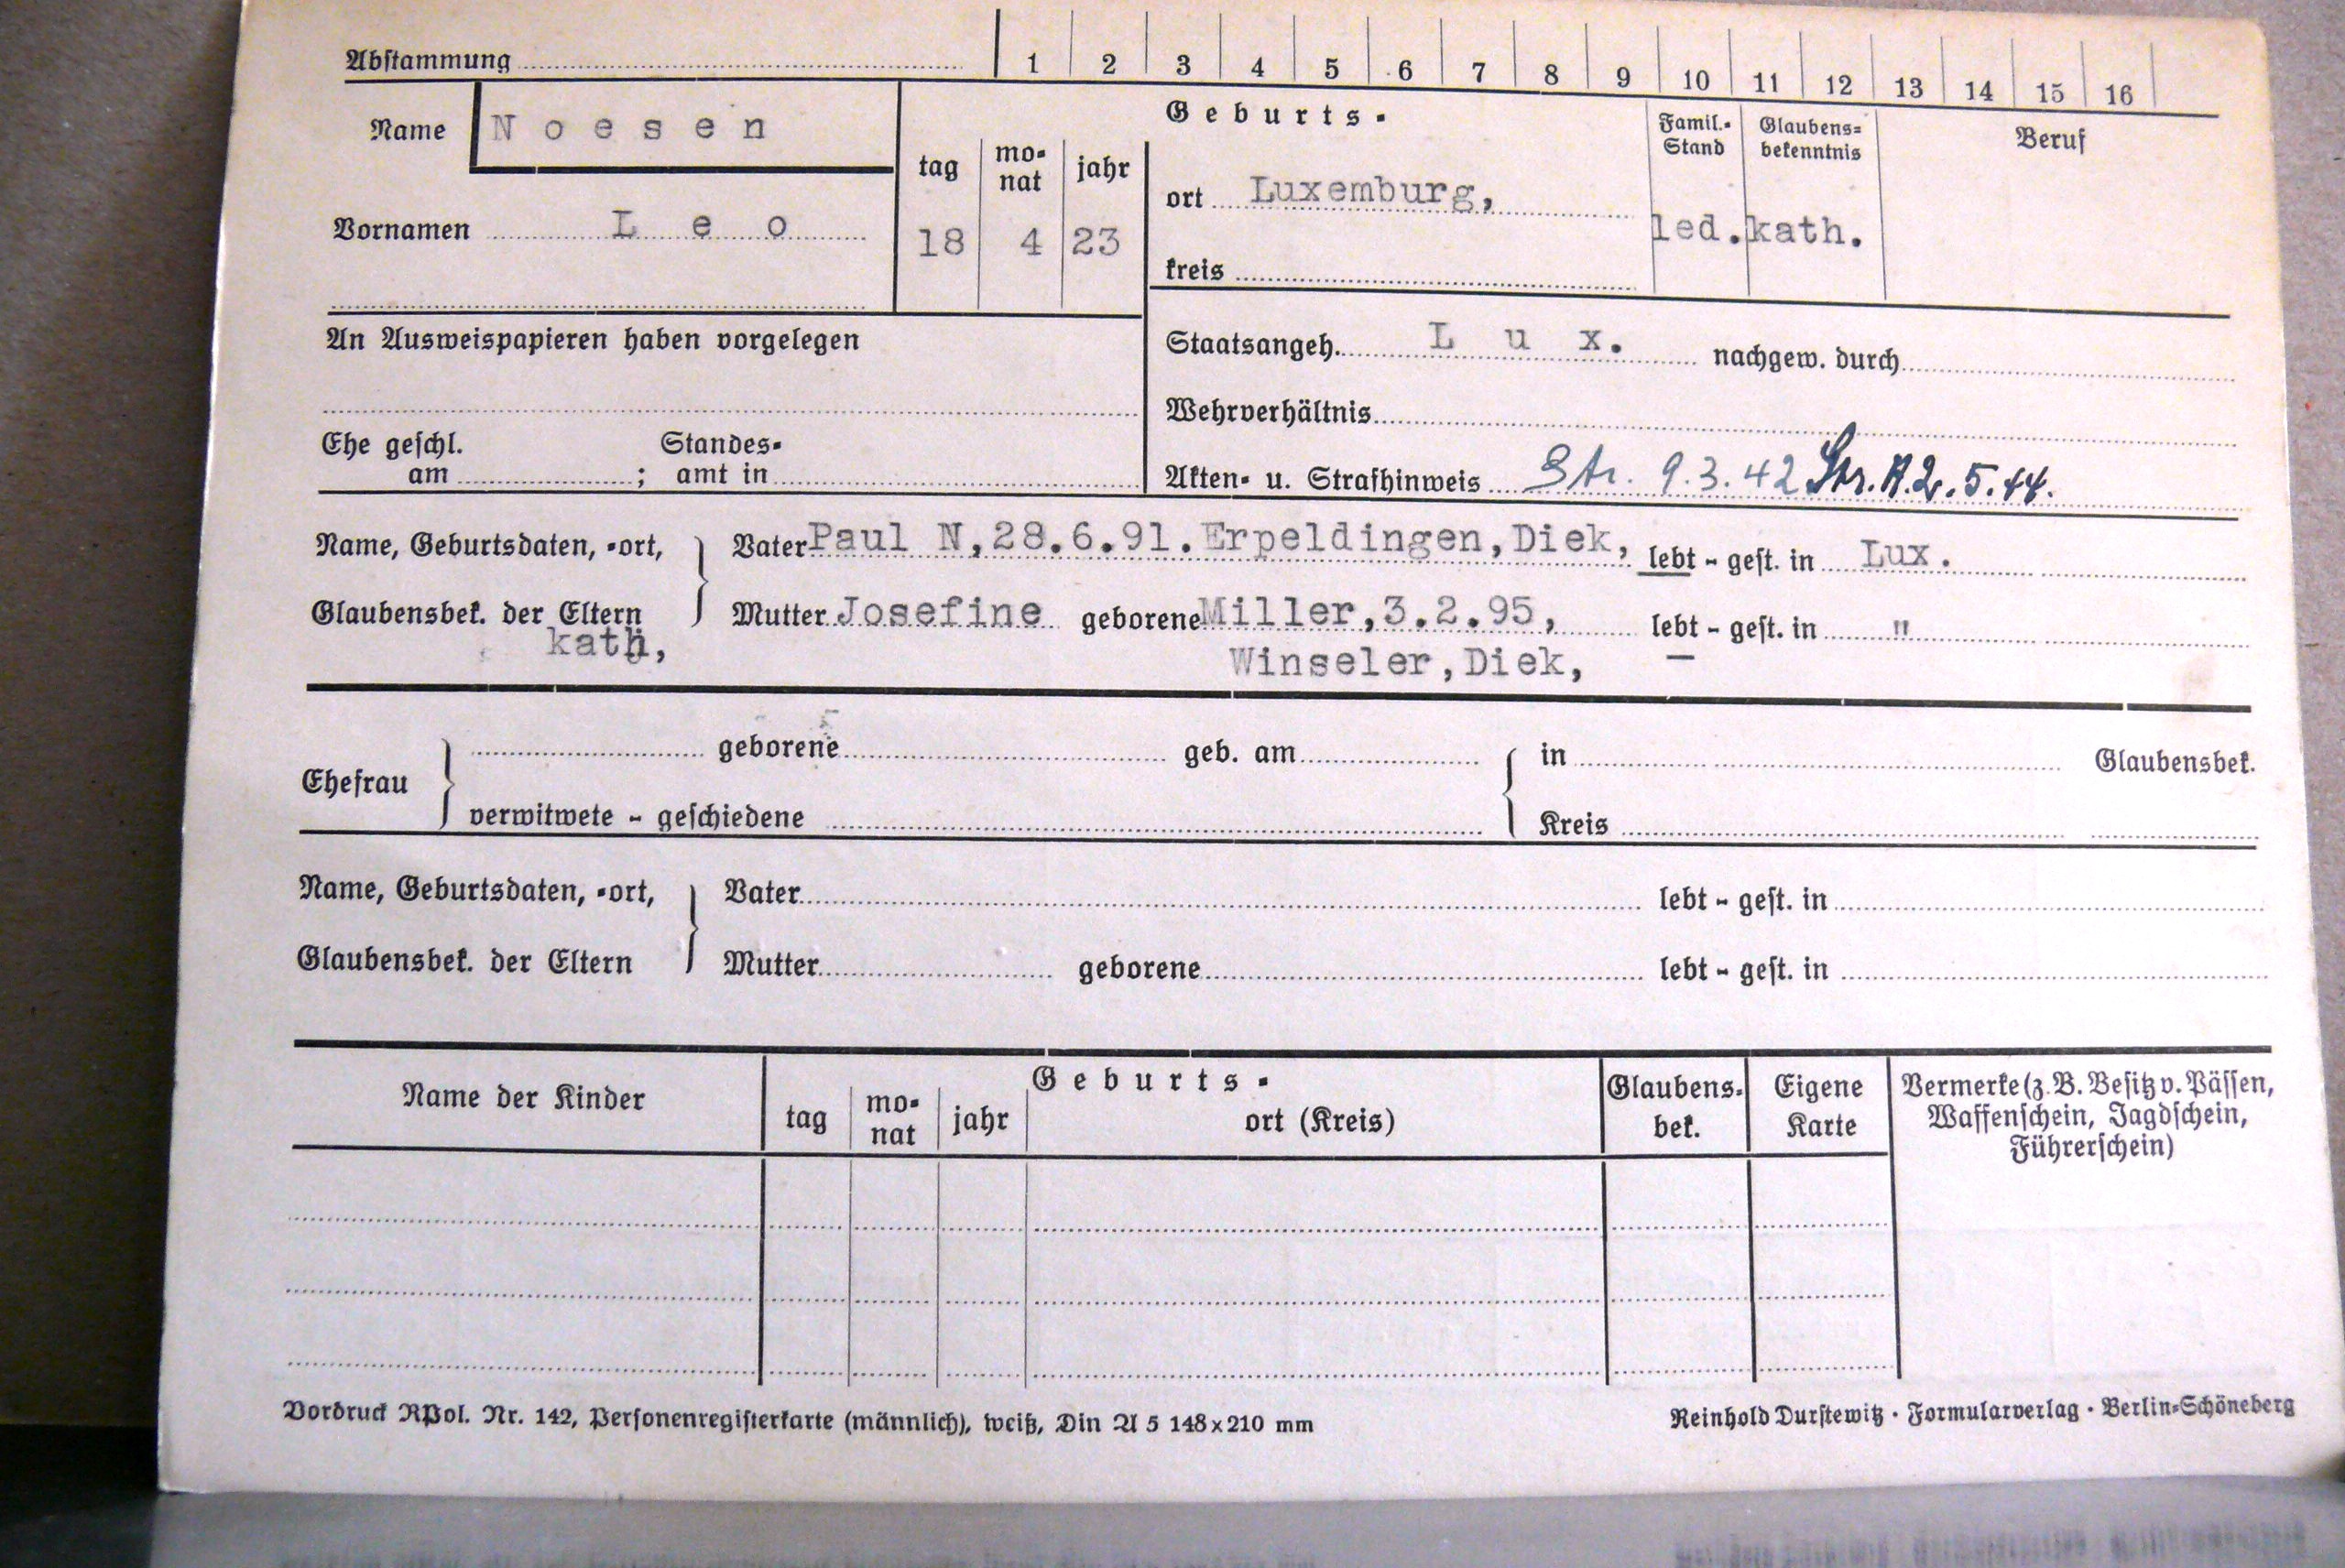 Abstammung 1 2 3 4 5 6 7 8 9 10 11 12 13 14 15 16
Name N o e s e n
Vornamen L e o
Geburts-
tag mo-nat jahr
18 4 23
ort Luxemburg,
kreis
Famil.-Stand
led.
Glaubens-bekenntnis
kath.
Beruf
An Ausweispapieren haben vorgelegen
Staatsangeh. L u x. nachgew. durch
Wehrverhältnis
Ehe geschl. am ; Standes-amt in
Akten- u. Strafhinweis Str. 9.3.42 Str.A.2.5.44.
Name, Geburtsdaten, -ort, Vater Paul N,28.6.91.Erpeldingen,Diek, lebt - gest. in Lux.
Glaubensbek. der Eltern Mutter Josefine geborene Miller,3.2.95, lebt - gest. in "
kath, Winseler,Diek,
Ehefrau geborene geb. am in Glaubensbek.
verwitwete - geschiedene Kreis
Name, Geburtsdaten, -ort, Vater lebt - gest. in
Glaubensbek. der Eltern Mutter geborene lebt - gest. in
Name der Kinder
Geburts-
tag mo-nat jahr ort (Kreis)
Glaubens-bek.
Eigene Karte
Vermerke (z. B. Besitz v. Pässen,
Waffenschein, Jagdschein,
Führerschein)
Vordruck RPol. Nr. 142, Personenregisterkarte (männlich), weiß, Din A 5 148x210 mm
Reinhold Durstewitz · Formularverlag · Berlin-Schöneberg